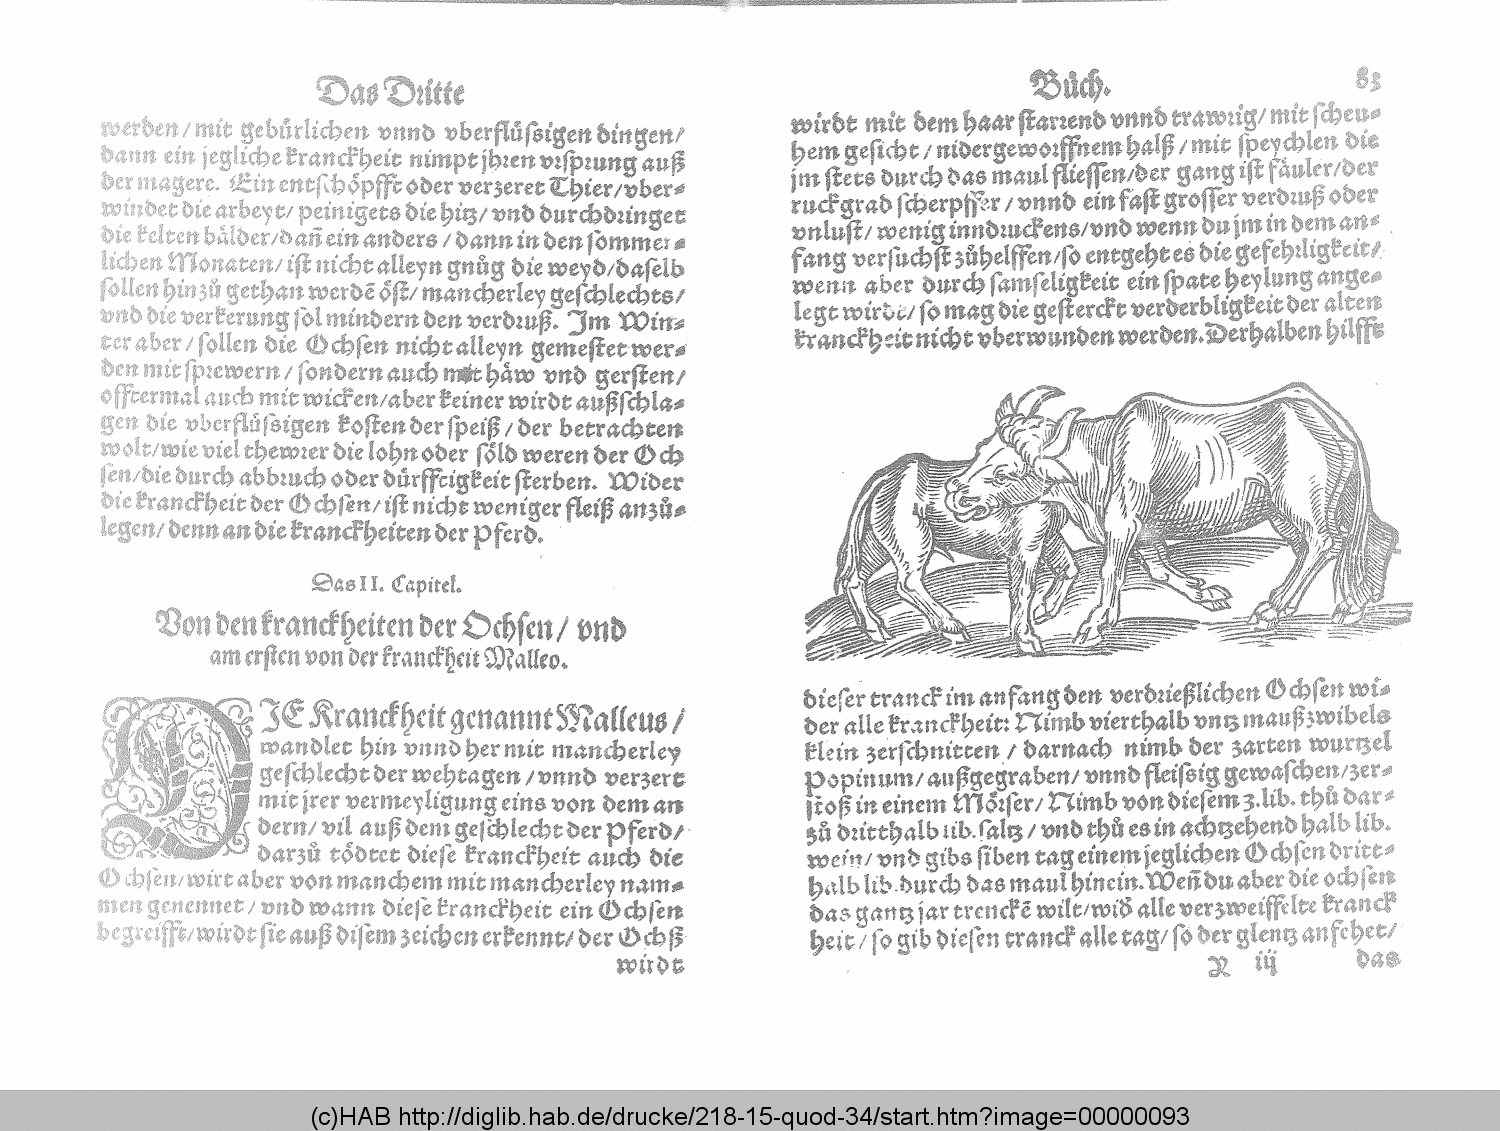 Das Dritte
werden / mit gebůrlichen vnnd vberflůſsigen dingen /
dann ein jegliche kranckheit nimpt jhren vrſprung auß
der magere. Ein entſchöpfft oder verzeret Thier / vber⸗
windet die arbeyt / peinigets die hitz / vnd durchdringet
die kelten bålder / dañ ein anders / dann in den ſommer⸗
lichen Monaten / iſt nicht alleyn gnůg die weyd / daſelb
ſollen hinzů gethan werdẽ ôſt / mancherley geſchlechts /
vnd die verkerung ſol mindern den verdruß. Im Win⸗
ter aber / ſollen die Ochſen nicht alleyn gemeſtet wer⸗
den mit ſprewern / ſondern auch mit håw vnd gerſten /
offtermal auch mit wicken / aber keiner wirdt außſchla⸗
gen die vberflůſsigen koſten der ſpeiß / der betrachten
wolt / wie viel thewrer die lohn oder ſöld weren der Och
ſen / die durch abbruch oder důrfftigkeit ſterben. Wider
die kranckheit der Ochſen / iſt nicht weniger fleiß anzů⸗
legen / denn an die kranckheiten der Pferd.
Das II. Capitel.
Von den kranckheiten der Ochſen / vnd
am erſten von der kranckheit Malleo.
DIE Kranckheit genannt Malleus /
wandlet hin vnnd her mit mancherley
geſchlecht der wehtagen / vnnd verzert
mit jrer vermeyligung eins von dem an
dern / vil auß dem geſchlecht der Pferd /
darzů tödtet dieſe kranckheit auch die
Ochſen / wirt aber von manchem mit mancherley nam⸗
men genennet / vnd wann dieſe kranckheit ein Ochſen
begreifft / wirdt ſie auß diſem zeichen erkennt / der Ochß
wirdt
Bůch. 83
wirdt mit dem haar ſtarrend vnnd trawrig / mit ſcheu⸗
hem geſicht / nidergeworffnem halß / mit ſpeychlen die
jm ſtets durch das maul flieſſen / der gang iſt fåuler / der
ruckgrad ſcherpffer / vnnd ein faſt groſſer verdruß oder
vnluſt / wenig inndruckens / vnd wenn du jm in dem an⸗
fang verſuchſt zůhelffen / ſo entgeht es die gefehrligkeit /
wenn aber durch ſamſeligkeit ein ſpate heylung ange⸗
legt wirdt / ſo mag die geſterckt verderbligkeit der alten
kranckheit nicht vberwunden werden. Derhalben hilfft
dieſer tranck im anfang den verdrießlichen Ochſen wi⸗
der alle kranckheit: Nimb vierthalb vntz maußzwibels
klein zerſchnitten / darnach nimb der zarten wurtzel
Popinum / außgegraben / vnnd fleiſsig gewaſchen / zer⸗
ſtoß in einem Mörſer / Nimb von dieſem 3. lib. thů dar⸗
zů dritthalb lib. ſaltz / vnd thů es in achtzehend halb lib.
wein / vnd gibs ſiben tag einem jeglichen Ochſen dritt⸗
halb lib. durch das maul hinein. Weñ du aber die ochſen
das gantz jar trenckẽ wilt / wid̃ alle verzweiffelte kranck
heit / ſo gib dieſen tranck alle tag / ſo der glentz anfehet /
iij das
(c)HAB http://diglib.hab.de/drucke/218-15-quod-34/start.htm?image=00000093